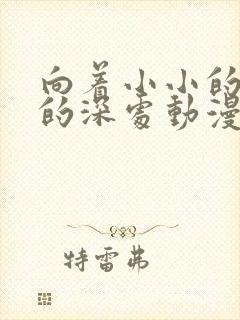 向着小小的
的深处動漫
特雷弗